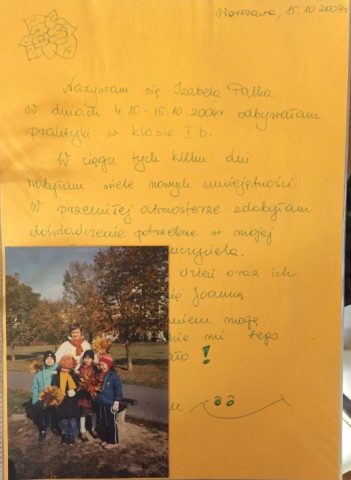 Warszawa, 15.10.2004r.
Nazywam się Izabela Palka
W dniach 4.10-15.10.2004r odbywałam
praktyki w klasie I b.
W ciągu tych kilku dni
nabyłam wiele nowych umiejętności
W przemiłej atmosferze zdobyłam
doświadczenie potrzebne w mojej
dzień oraz ich
ię Joannę
mogę
nie mi tego
ało!